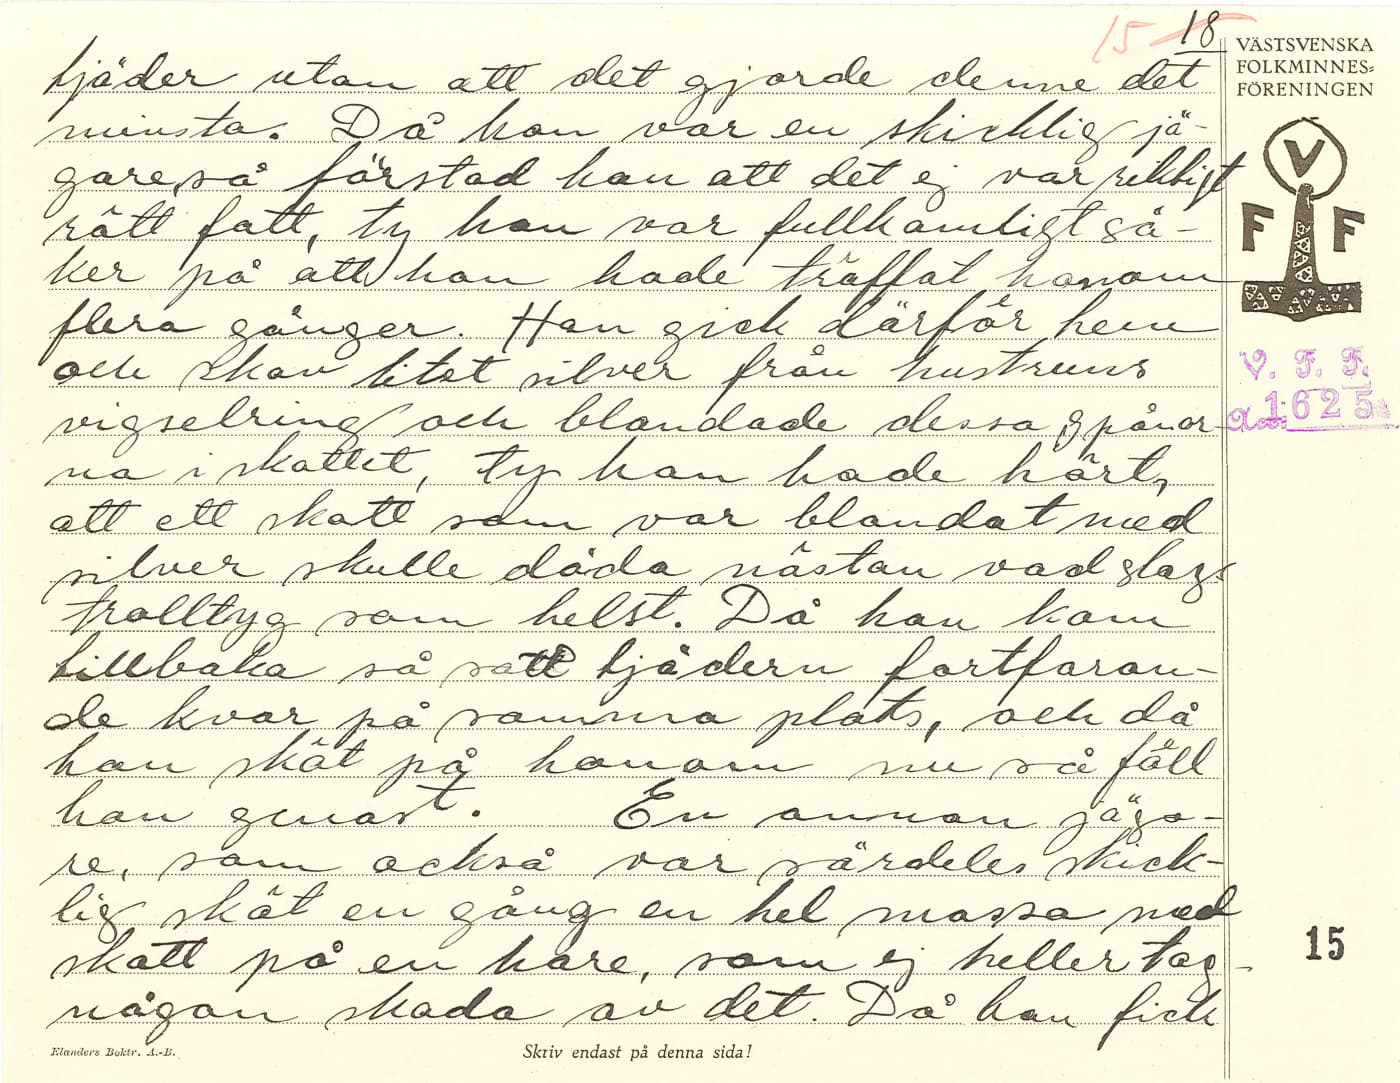 15 18
VÄSTSVENSKA
FOLKMINNES-
FÖRENINGEN
V
F F
V. F. F.
Acc: 1625
tjäder utan att det gjorde denne det
minsta. Då han var en skicklig jä-
gare, så förstod han att det ej var riktigt
rätt fatt, ty han var fullkomligt sä-
ker på att han hade träffat honom
flera gånger. Han gick därför hem
och skav litet silver från hustruns
vigselring och blandade dessa spånor-
na i skottet, ty han hade hört,
att ett skott som var blandat med
silver skulle döda nästan vad slags
trolltyg som helst. Då han kom
tillbaka så satt tjädern fortfaran-
de kvar på samma plats, och då
han sköt på honom nu så föll
han genast. En annan jäga-
re, som också var särdeles skick-
lig sköt en gång en hel massa med
skott på en hare, som ej heller tog
någon skada av det. Då han fick
15
Elanders Boktr. A.-B.
Skriv endast på denna sida!